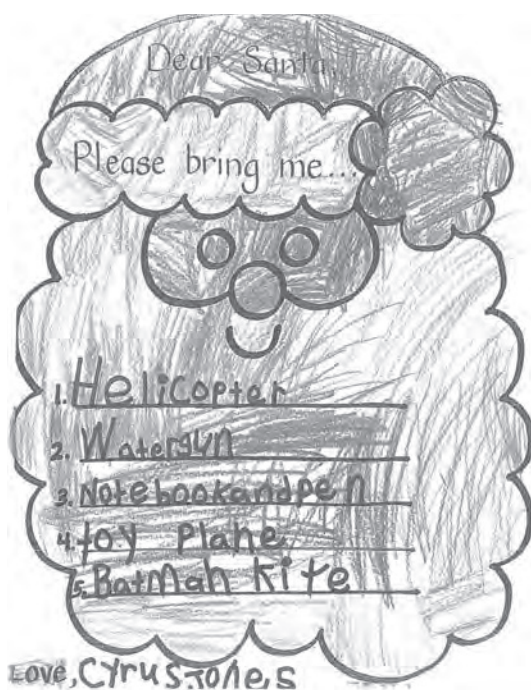 Dear Santa,
Please bring me...
1. Helicopter
2. Watergun
3. Notebookandpen
4. toy plane
5. BatMan kite
Love, Cyrus Jones